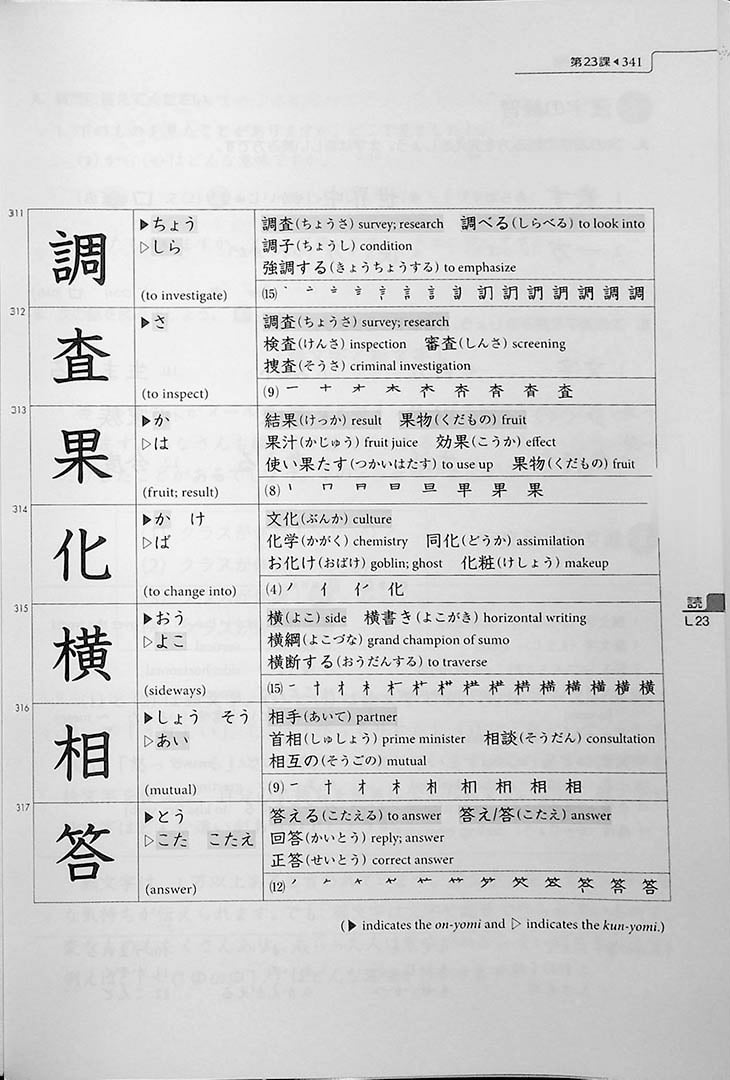 第23課◀341
311
調
▶ちょう
▷しら
(to investigate)
調査(ちょうさ) survey; research 調べる(しらべる) to look into
調子(ちょうし) condition
強調する(きょうちょうする) to emphasize
(15)
312
査
▶さ
(to inspect)
調査(ちょうさ) survey; research
検査(けんさ) inspection 審査(しんさ) screening
捜査(そうさ) criminal investigation
(9)
313
果
▶か
▷は
(fruit; result)
結果(けっか) result 果物(くだもの) fruit
果汁(かじゅう) fruit juice 効果(こうか) effect
使い果たす(つかいはたす) to use up 果物(くだもの) fruit
(8)
314
化
▶か け
▷ば
(to change into)
文化(ぶんか) culture
化学(かがく) chemistry 同化(どうか) assimilation
お化け(おばけ) goblin; ghost 化粧(けしょう) makeup
(4)
315
横
▶おう
▷よこ
(sideways)
横(よこ) side 横書き(よこがき) horizontal writing
横綱(よこづな) grand champion of sumo
横断する(おうだんする) to traverse
(15)
316
相
▶しょう そう
▷あい
(mutual)
相手(あいて) partner
首相(しゅしょう) prime minister 相談(そうだん) consultation
相互の(そうごの) mutual
(9)
317
答
▶とう
▷こた こたえ
(answer)
答える(こたえる) to answer 答え/答(こたえ) answer
回答(かいとう) reply; answer
正答(せいとう) correct answer
(12)
読
L23
(▶ indicates the on-yomi and ▷ indicates the kun-yomi.)